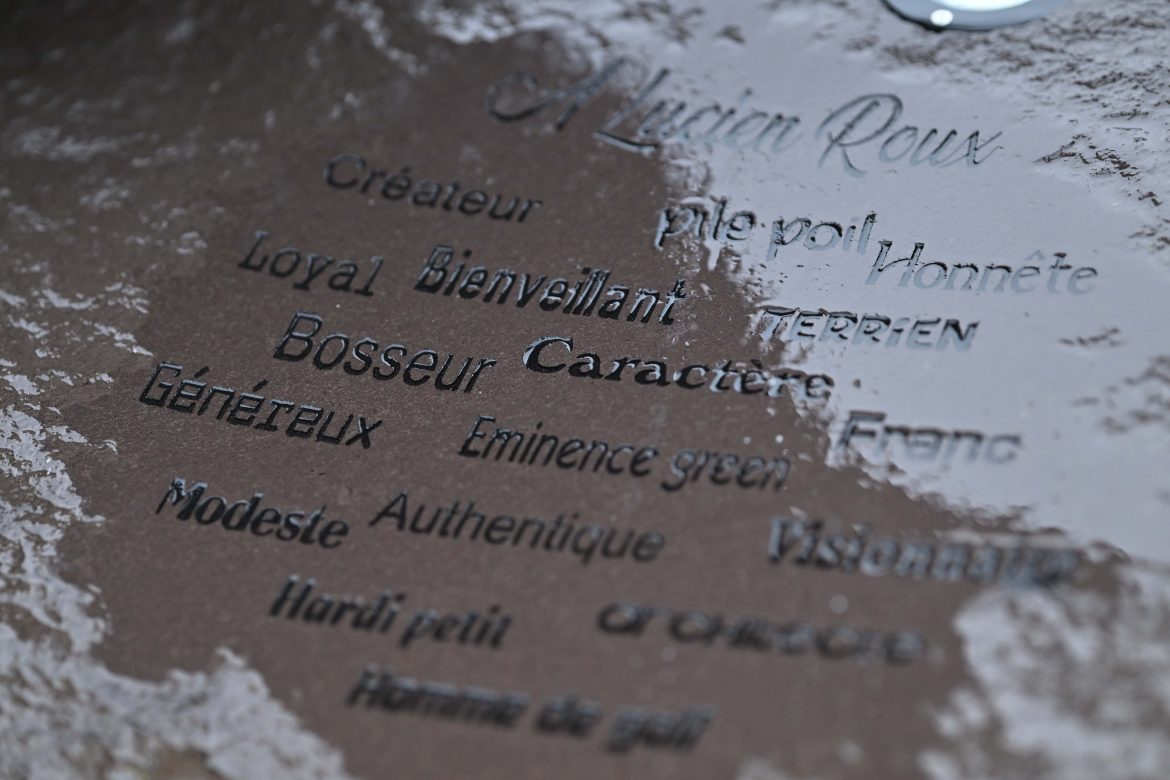 A Lucien Roux
Créateur pile poil
Loyal Bienveillant Honnête
Bosseur Caractère TERRIEN
Généreux Eminence green Franc
Modeste Authentique Visionnaire
Hardi petit architecte
Homme de golf